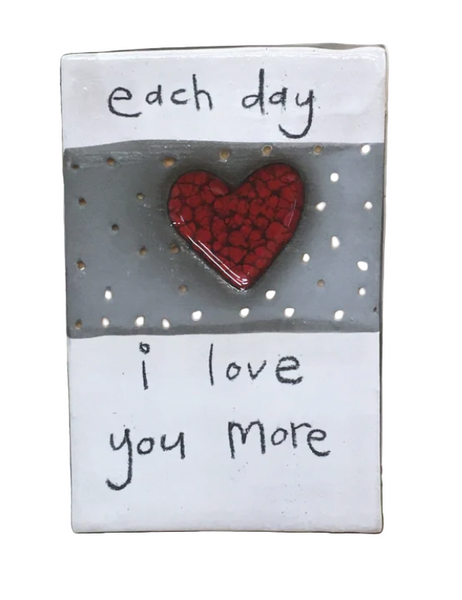 each day
i love
you more